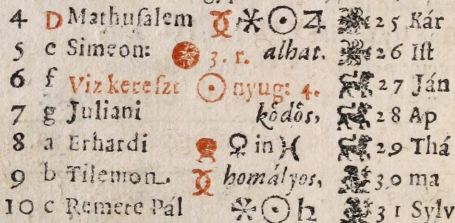 4 D Mathuſalem ☊ ✱ ☉ ♃ 25 Kár
5 e Simeon: 3. r. alhat. 26 Iſt
6 f Viz kereſzt ☉ nyug: 4. 27 Ján
7 g Juliani kődős, 28 Ap
8 a Erhardi ♀ in ♓ 29 Thá
9 b Tilemon. homályos, 30 ma
10 c Remete Pál ✱ ☉ ♄ 31 Sylv